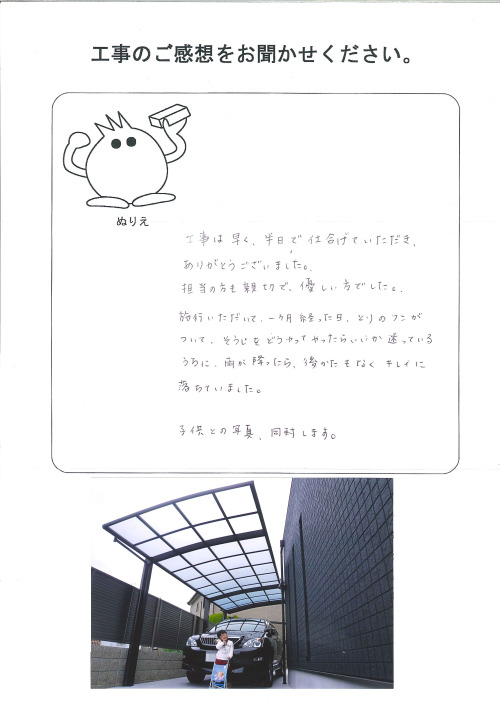 工事のご感想をお聞かせください。
ぬりえ
工事は早く、半日で仕合げていただき、
ありがとうございました。
担当の方も親切で、優しい方でした。
施行いただいて、一ヶ月経った日、とりのフンが
ついて、そうじをどうやってやったらいいか迷っている
うちに、雨が降ったら、後かたもなくキレイに
落ちていました。
子供との写真、同封します。